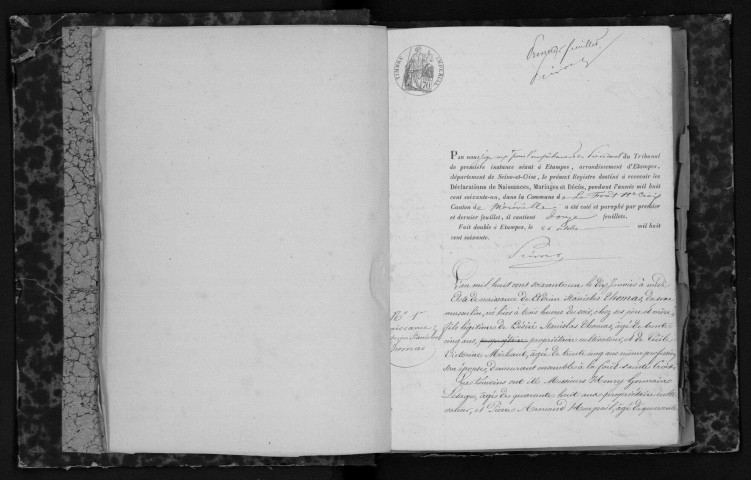 TIMBRE IMPERIAL
feuillet
Par nous juge au Tribunal du Tribunal
de première instance séant à Etampes, arrondissement d'Etampes,
département de Seine-et-Oise, le présent Registre destiné à recevoir les
Déclarations de Naissances, Mariages et Décès, pendant l'année mil huit
cent soixante-un, dans la Commune de La Forêt Ste Croix
Canton de Méréville a été coté et paraphé par premier
et dernier feuillet, il contient feuillets.
Fait double à Etampes, le mil huit
cent soixante.
L'an mil huit cent soixante un le dix janvier à midi
Acte de naissance de Stanislas Thomas, du sexe
masculin, né hier à trois heures du soir, chez ses père et mère
fils légitime de Désiré Stanislas Thomas, âgé de trente
cinq ans, propriétaire cultivateur, et de Cécile
Victorine Michaut, âgée de trente cinq ans même profession
son épouse, demeurant ensemble à la forêt sainte Croix
Les témoins ont été Messieurs Henry Germain
Lesage, âgé de quarante huit ans, propriétaire culti-
vateur, et Pierre Armand âgé de quarante
No 1er
naissance
Thomas